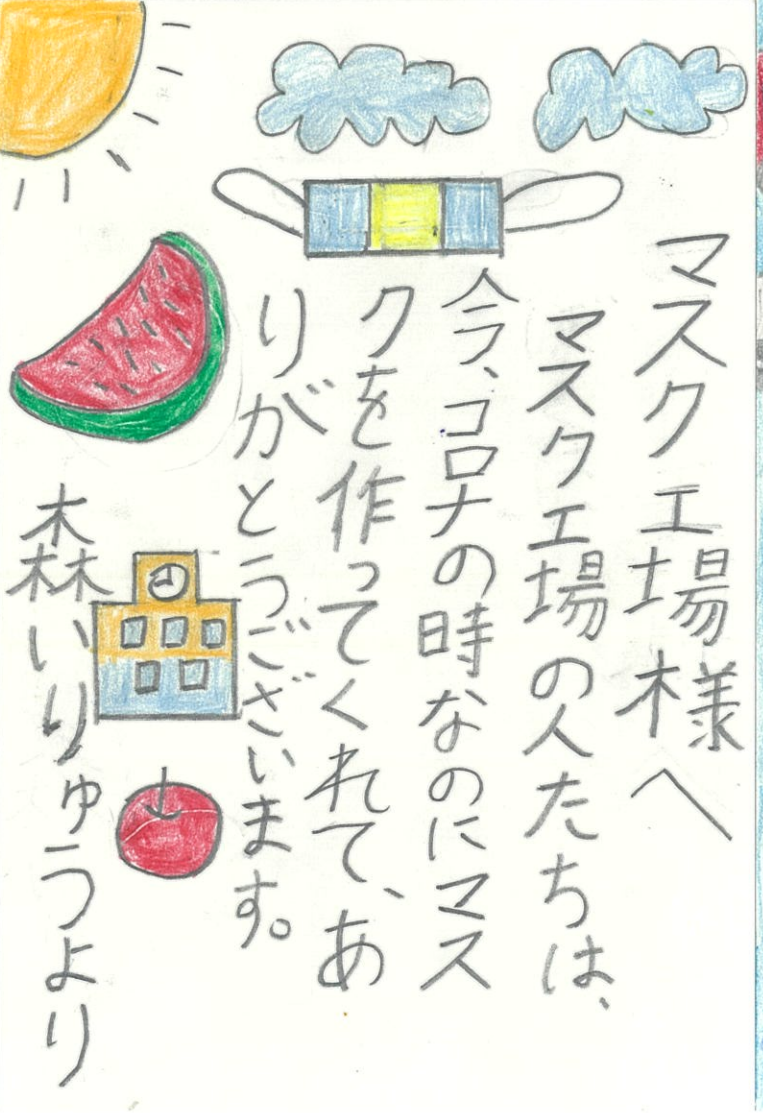 マスク工場様へ
マスク工場の人たちは、
今、コロナの時なのにマス
クを作ってくれて、あ
りがとうございます。
森いりゅうより